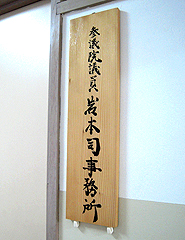 参議院議員岩本司事務所